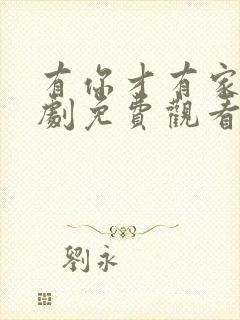 有你才有家
劇免費觀看
劉永